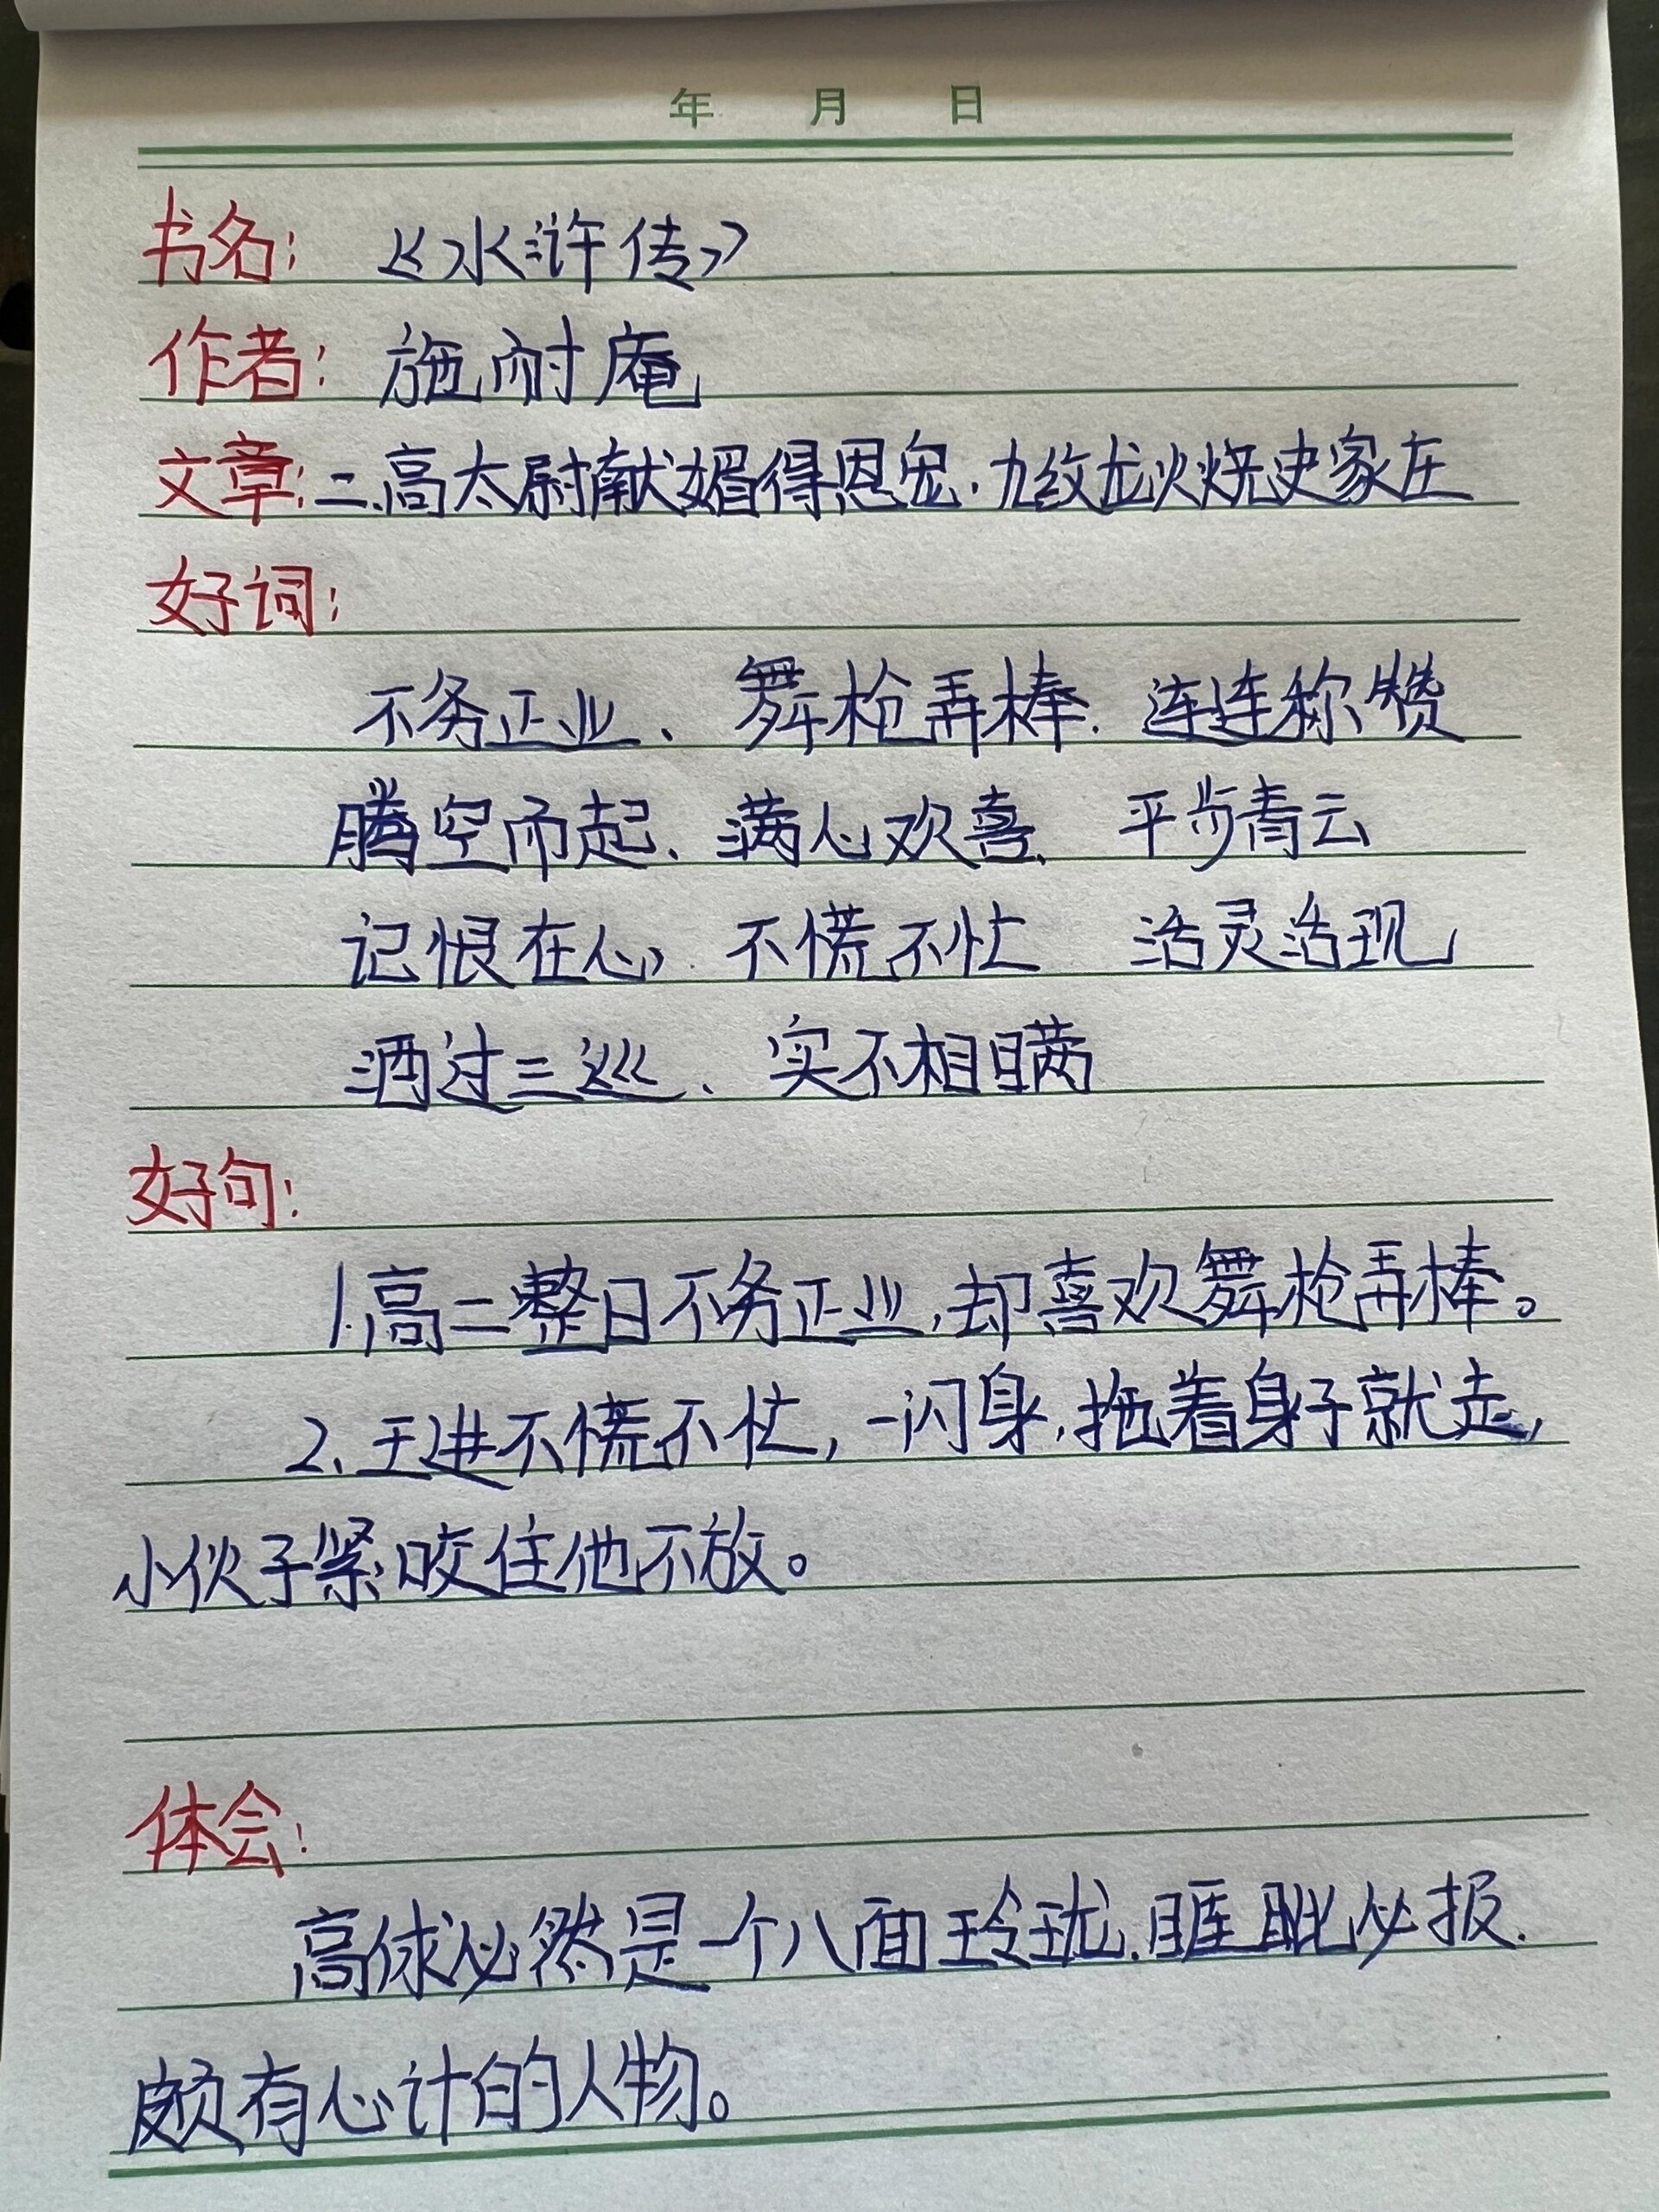 年 月 日
书名：《水浒传》
作者：施耐庵
文章：二.高太尉献媚得恩宠.九纹龙火烧史家庄
好词：
不务正业、舞枪弄棒.连连称赞
腾空而起、满心欢喜、平步青云
记恨在心、不慌不忙 活灵活现
酒过三巡、实不相瞒
好句：
1.高二整日不务正业,却喜欢舞枪弄棒。
2.王进不慌不忙,一闪身,拖着身子就走,
小伙子紧咬住他不放。
体会：
高俅必然是一个八面玲珑.睚眦必报.
颇有心计的人物。